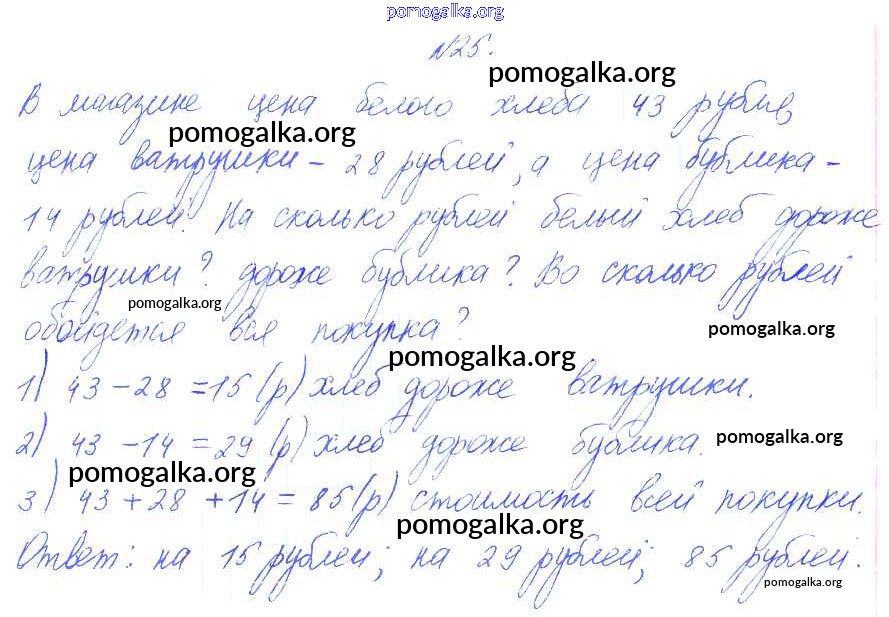 pomogalka.org
№25.
pomogalka.org
В магазине цена белого хлеба 43 рубля,
pomogalka.org
цена ватрушки - 28 рублей, а цена бублика -
14 рублей. На сколько рублей белый хлеб дороже
ватрушки? дороже бублика? Во сколько рублей
pomogalka.org
обойдется вся покупка?
pomogalka.org
pomogalka.org
1) 43 - 28 = 15 (р) хлеб дороже ватрушки.
2) 43 - 14 = 29 (р) хлеб дороже бублика.
pomogalka.org
pomogalka.org
3) 43 + 28 + 14 = 85 (р) стоимость всей покупки.
pomogalka.org
Ответ: на 15 рублей; на 29 рублей; 85 рублей.
pomogalka.org